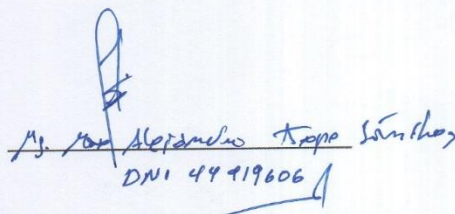 Mg. Max Alejandro Sánchez
DNI 44919606